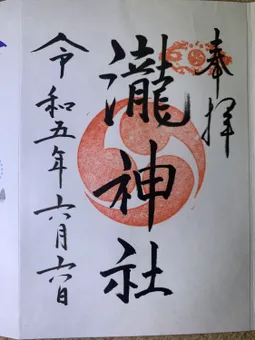 奉拝
瀧神社
令和五年六月六日